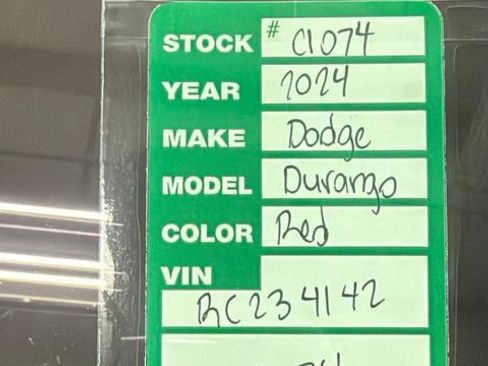 STOCK # C1074
YEAR 2024
MAKE Dodge
MODEL Durango
COLOR Red
VIN
RC234142